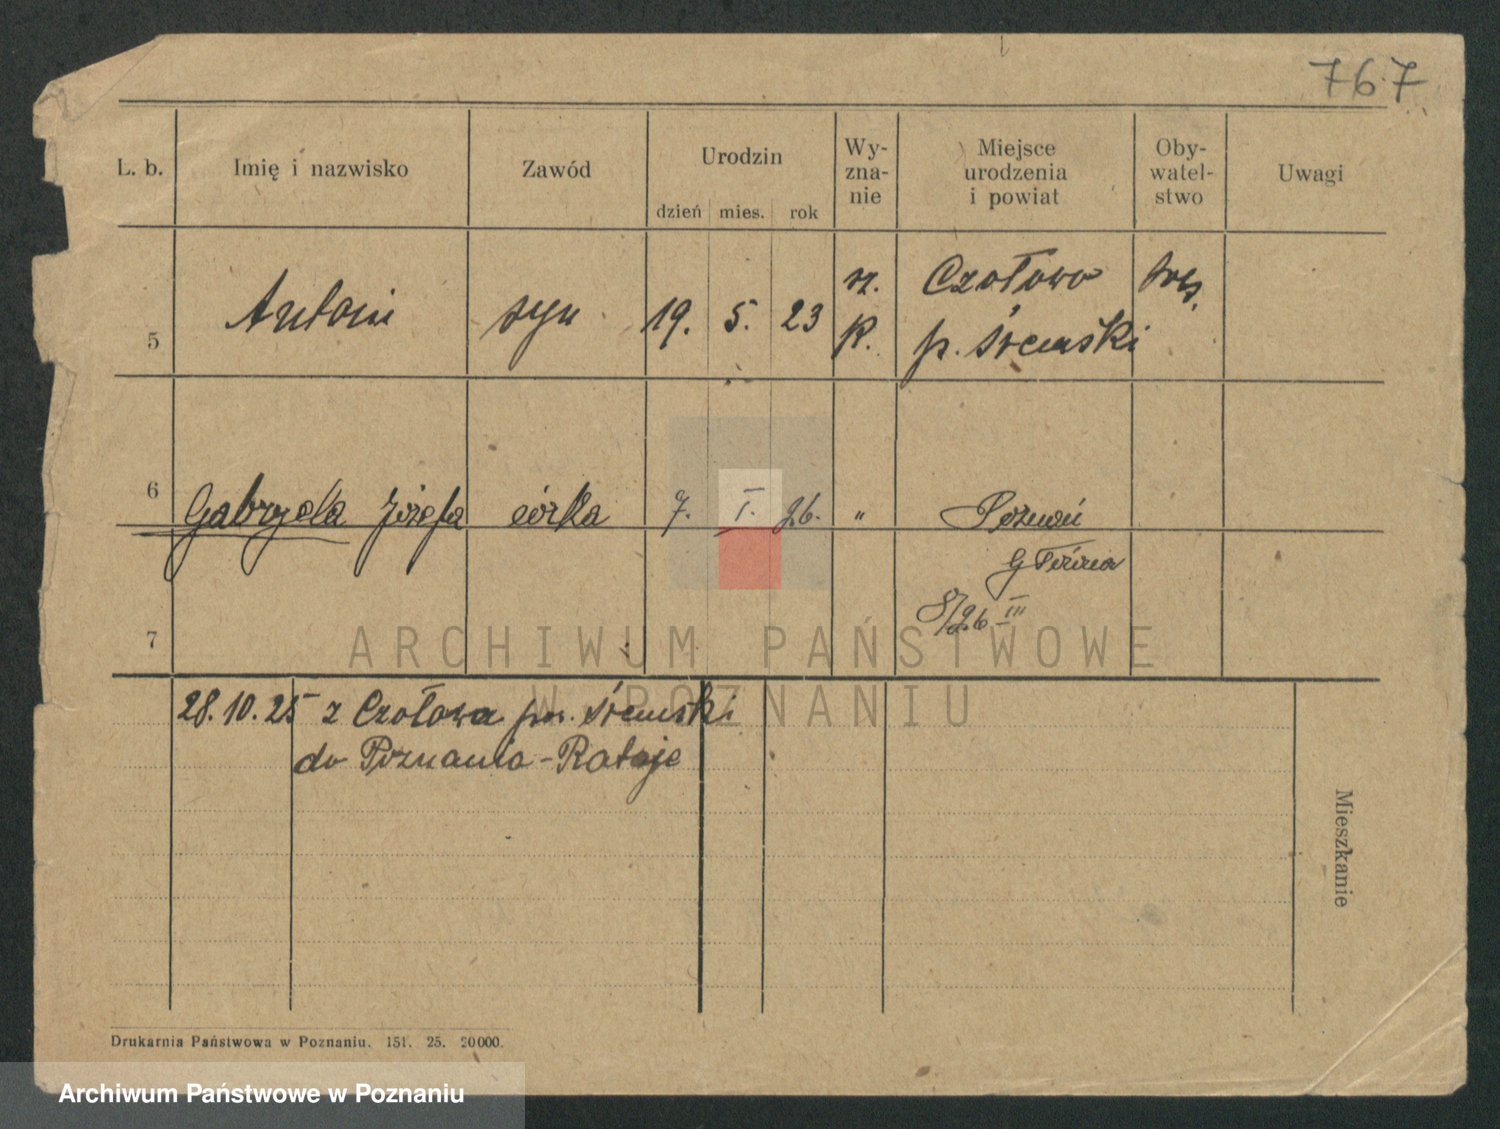 767
L. b. Imię i nazwisko Zawód Urodzin Wy-
zna-
nie Miejsce
urodzenia
i powiat Oby-
watel-
stwo Uwagi
dzień mies. rok
5 Antoni syn 19. 5. 23 rz.
k. Czołowo
p. śremski
6 Gabryela Józefa córka 7. I. 26. " Poznań
G
8/26 III
7
28.10.25 z Czołowa pow. śremski
do Poznania-Rataje
Mieszkanie
Drukarnia Państwowa w Poznaniu. 151. 25. 20000.
ARCHIWUM PAŃSTWOWE
W POZNANIU
Archiwum Państwowe w Poznaniu